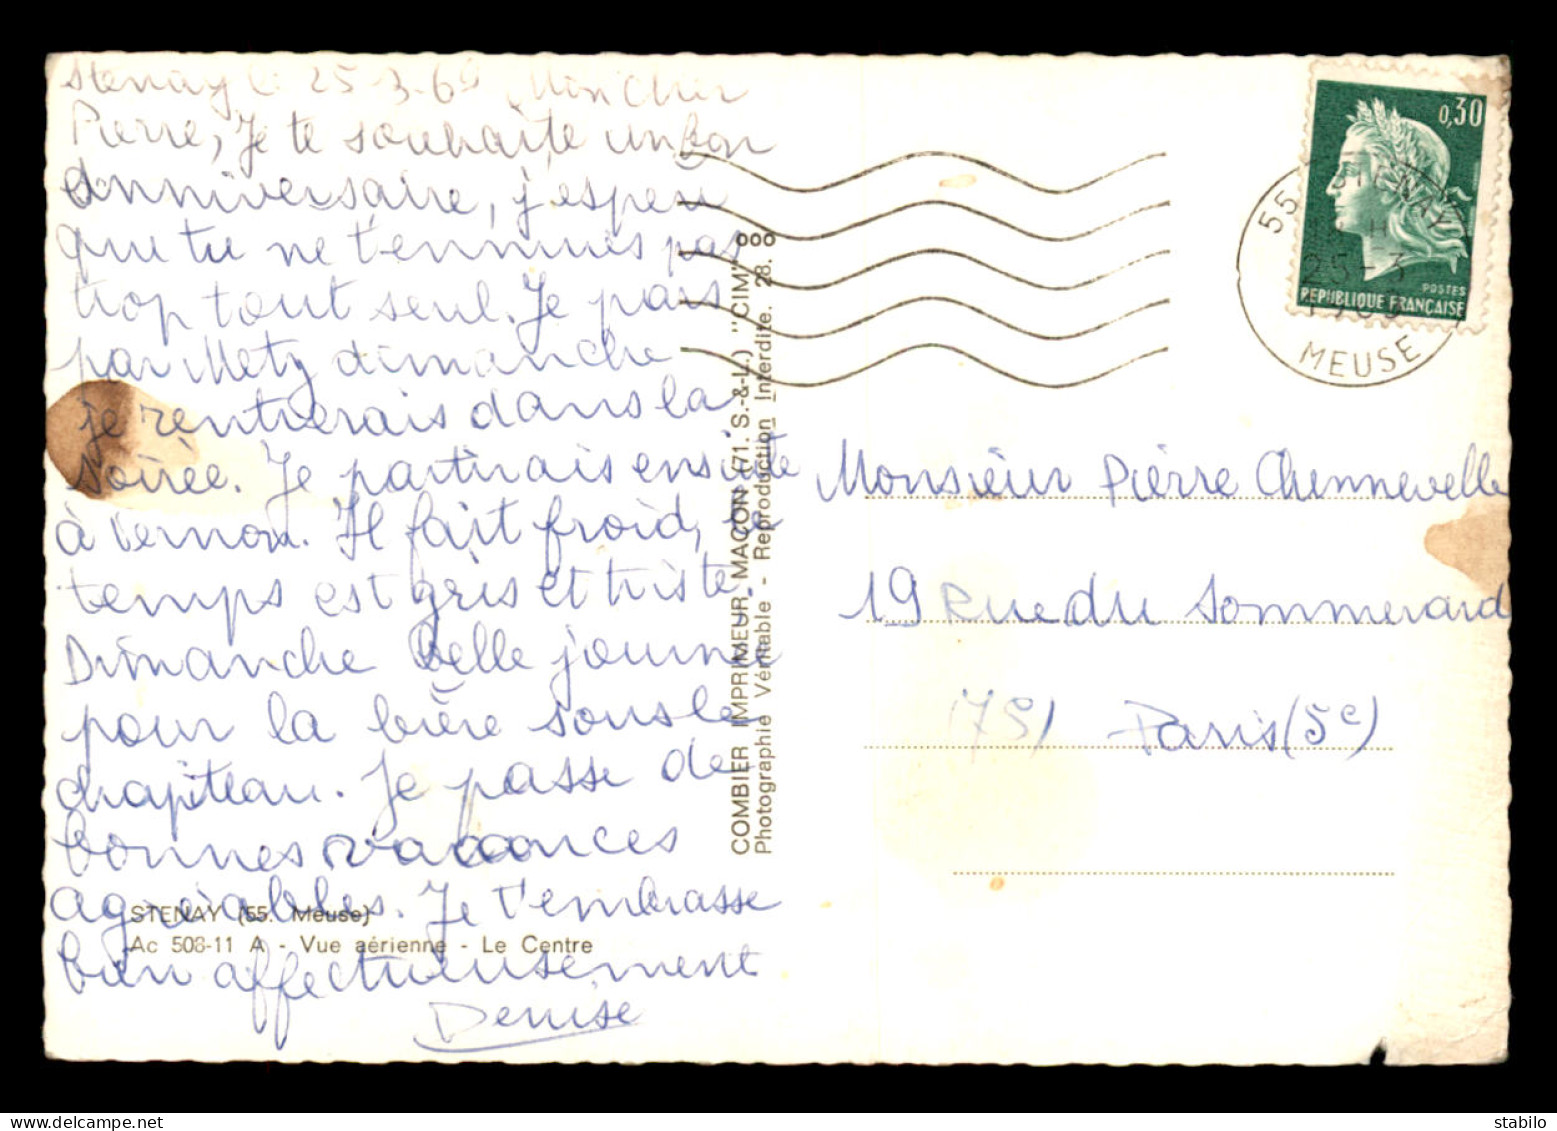 Stenay le 25-3-69 Mon Cher
Pierre, Je te souhaite un bon
anniversaire, j'espère
que tu ne t'ennuies pas
trop tout seul. Je pars
par Metz dimanche
je rentrerais dans la
soirée. Je partirais ensuite
à Vernon. Il fait froid, le
temps est gris et triste.
Dimanche belle journée
pour la bière sous le
chapiteau. Je passe de
bonnes vacances
agréables. Je t'embrasse
bien affectueusement
Denise
STENAY (55. Meuse)
Ac 508-11 A - Vue aérienne - Le Centre
COMBIER IMPRIMEUR MACON (71. S.-&-L.) "CIM"
Photographie Véritable - Reproduction Interdite. 28.
0,30
POSTES
REPUBLIQUE FRANÇAISE
55 STENAY
25-3
MEUSE
Monsieur Pierre Chennevelle
19 Rue du Sommerard
(75) Paris (5e)